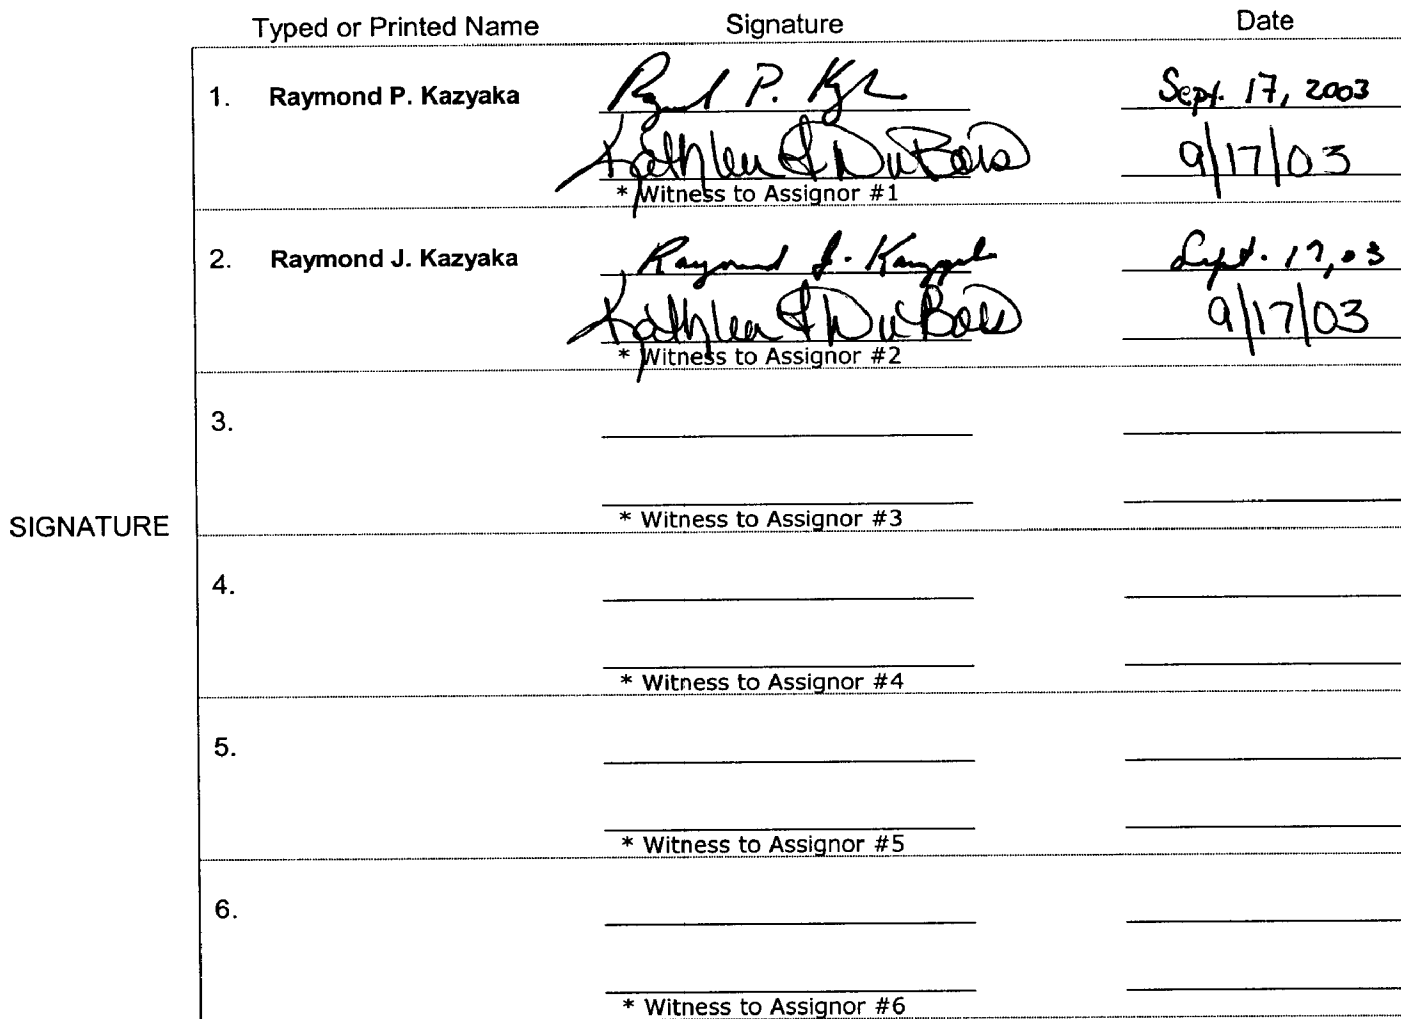 Typed or Printed Name Signature Date
1. Raymond P. Kazyaka Raymond P. Sept. 17, 2003
Kathleen DuBois 9/17/03
* Witness to Assignor #1
2. Raymond J. Kazyaka Raymond J. Kazyaka Sept. 17, 03
Kathleen DuBois 9/17/03
* Witness to Assignor #2
3.
* Witness to Assignor #3
SIGNATURE
4.
* Witness to Assignor #4
5.
* Witness to Assignor #5
6.
* Witness to Assignor #6